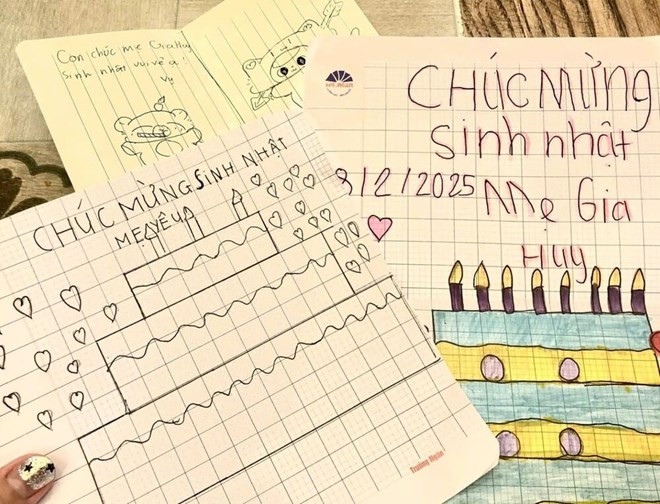 Con chúc mẹ Gia Huy
sinh nhật vui vẻ ạ!
CHÚC MỪNG SINH NHẬT
MẸ YÊU
Trường Ngân
CHÚC MỪNG
sinh nhật
/2/2025 Mẹ Gia
Huy